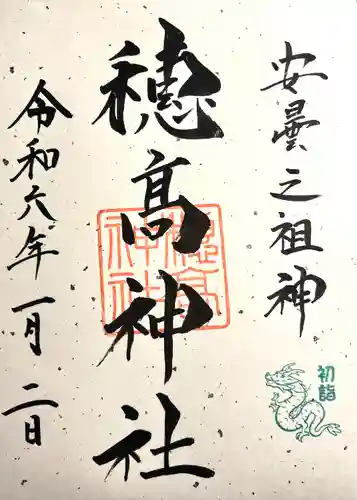 安曇之祖神
穂髙神社
穂高神社
初詣
令和六年一月二日